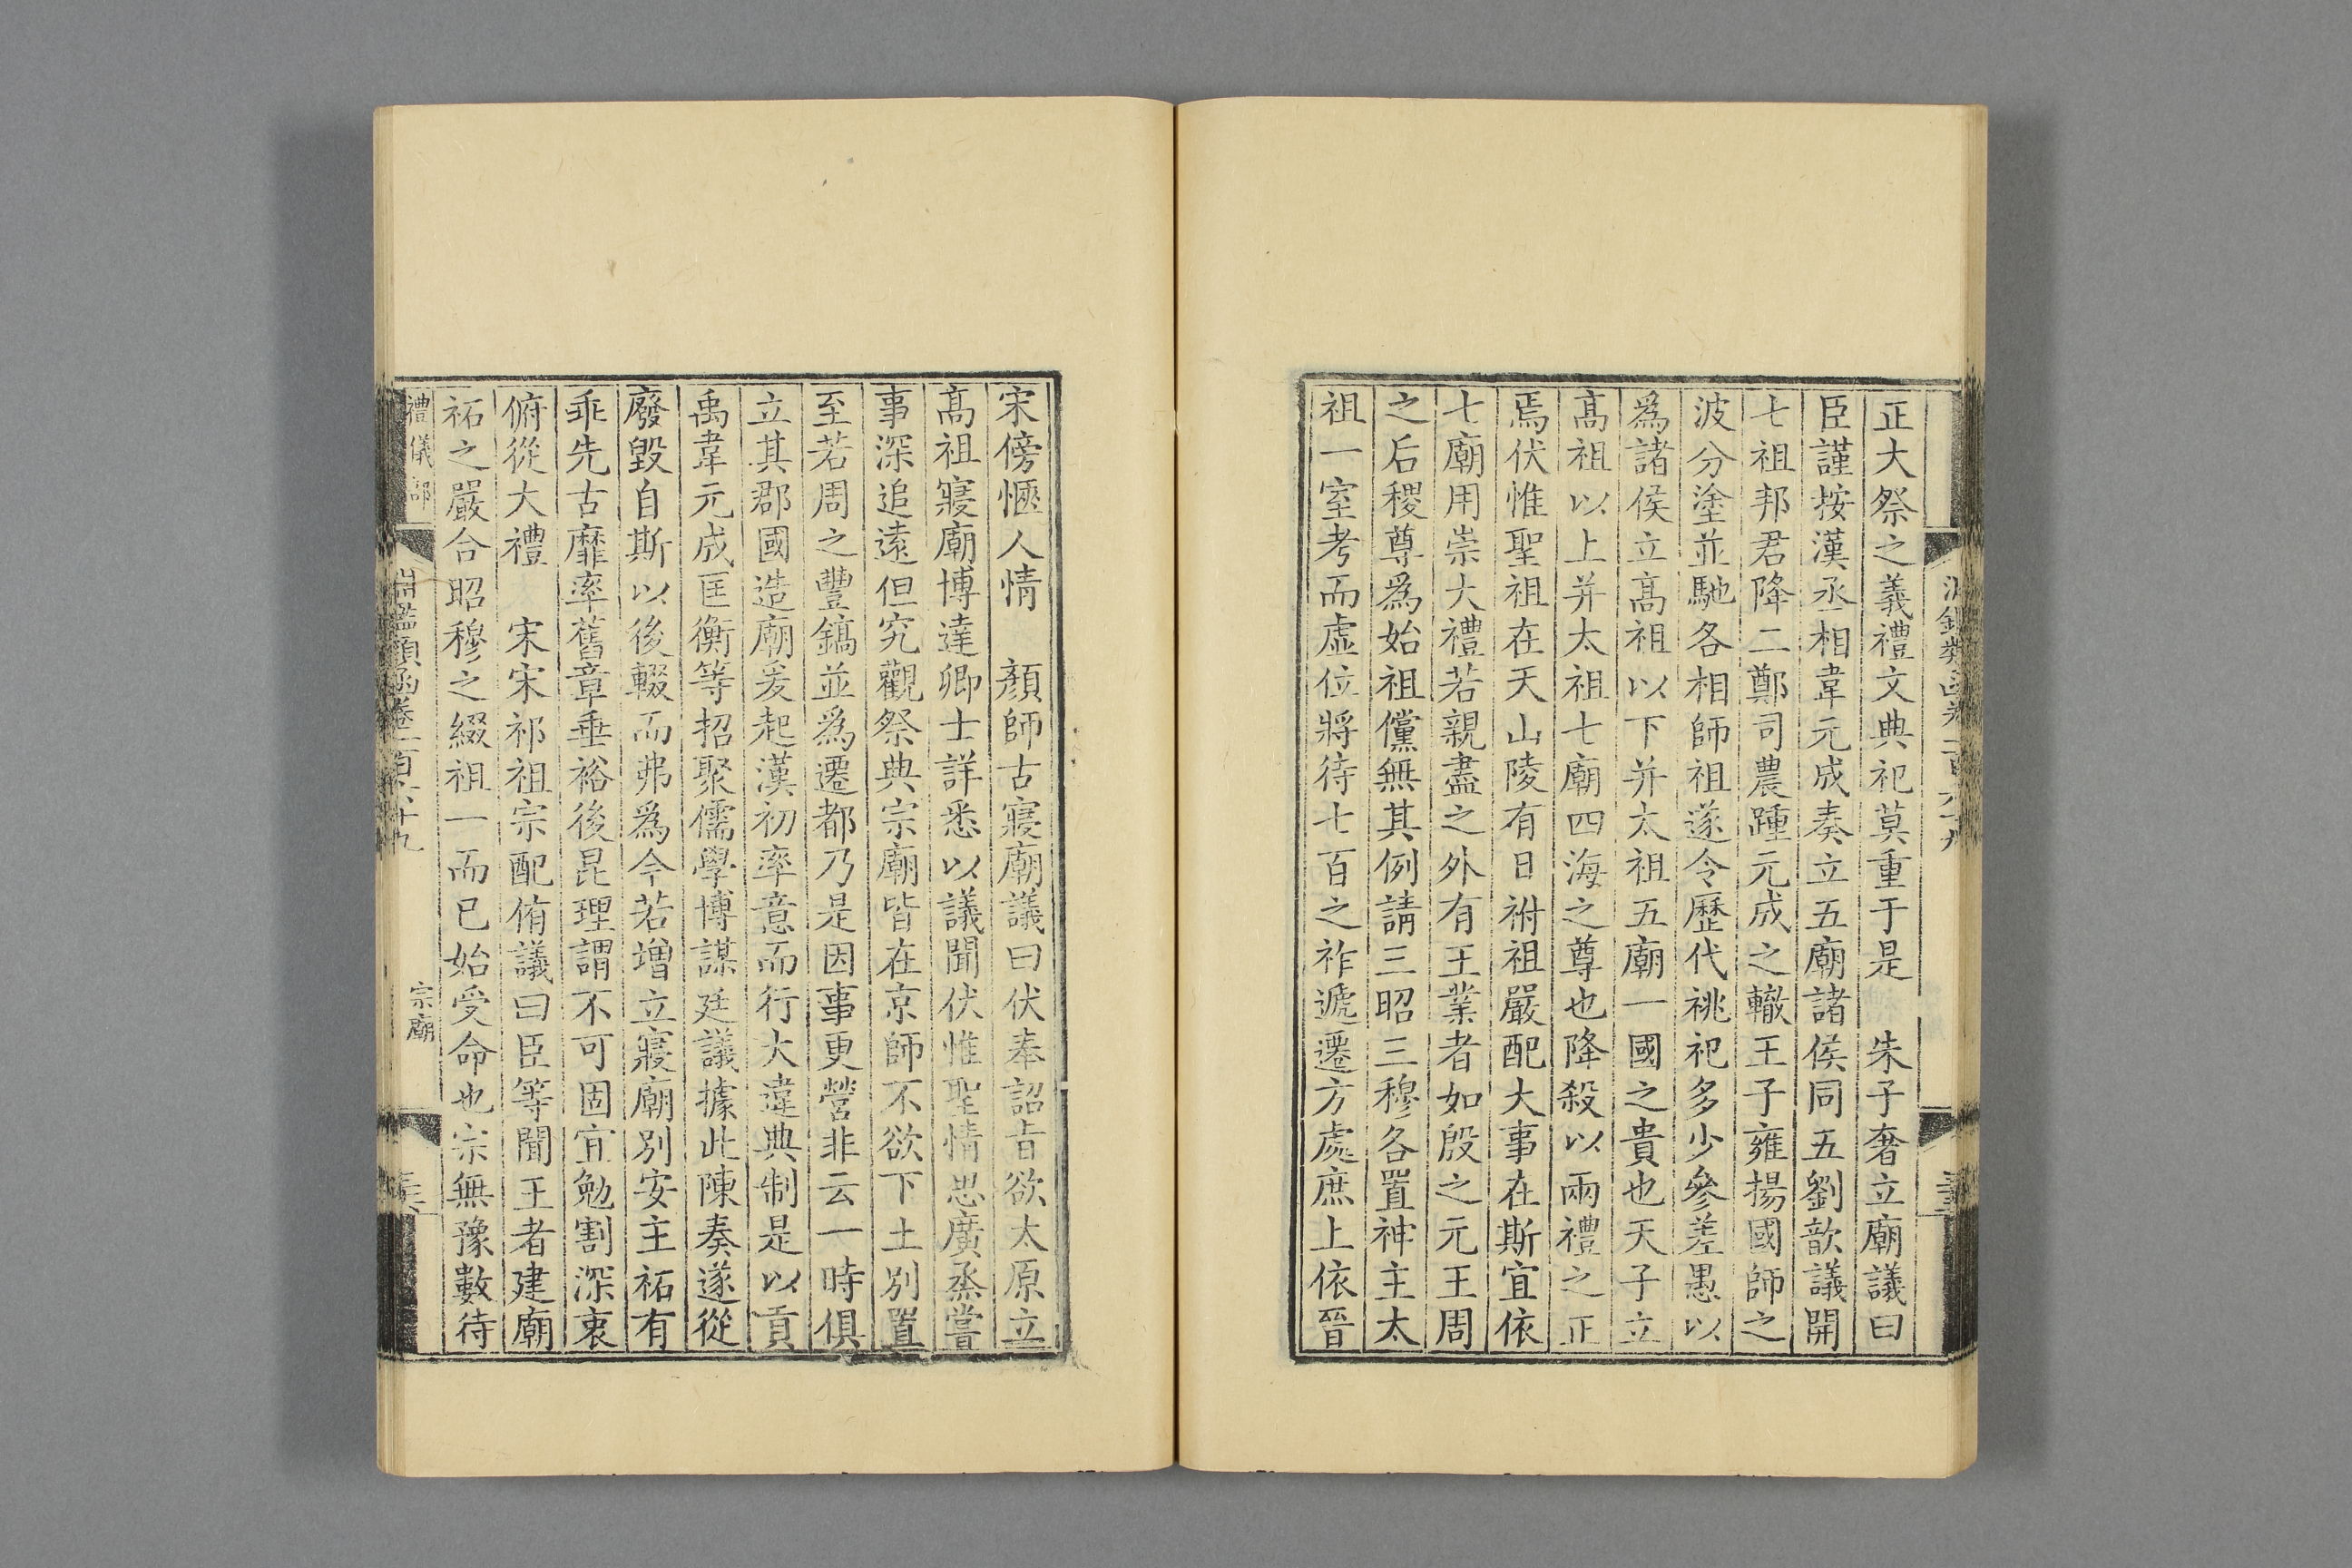 正大祭之義禮文典祀莫重于是　朱子奢立廟議曰
臣謹按漢丞相韋元成奏立五廟諸侯同五劉歆議開
七祖邦君降二鄭司農踵元成之轍王子雍揚國師之
波分塗並馳各相師祖遂令歷代祧祀多少參差愚以
爲諸侯立高祖以下并太祖五廟一國之貴也天子立
高祖以上并太祖七廟四海之尊也降殺以兩禮之正
焉伏惟聖祖在天山陵有日祔祖嚴配大事在斯宜依
七廟用崇大禮若親盡之外有王業者如殷之元王周
之后稷尊爲始祖儻無其例請三昭三穆各置神主太
祖一室考而虛位將待七百之祚遞遷方處庶上依晉
宋傍愜人情　顏師古寢廟議曰伏奉詔旨欲太原立
高祖寢廟博達卿士詳悉以議聞伏惟聖情思廣烝嘗
事深追遠但究觀祭典宗廟皆在京師不欲下土別置
至若周之豐鎬並爲遷都乃是因事更營非云一時俱
立其郡國造廟爰起漢初率意而行大違典制是以貢
禹韋元成匡衡等招聚儒學博謀廷議據此陳奏遂從
廢毀自斯以後輟而弗爲今若增立寢廟別安主祏有
乖先古靡率舊章垂裕後昆理謂不可固宜勉割深衷
俯從大禮　宋宋祁祖宗配侑議曰臣等聞王者建廟
祏之嚴合昭穆之綴祖一而已始受命也宗無豫數待
禮儀部
淵鑑類函卷一百六十九
宗廟